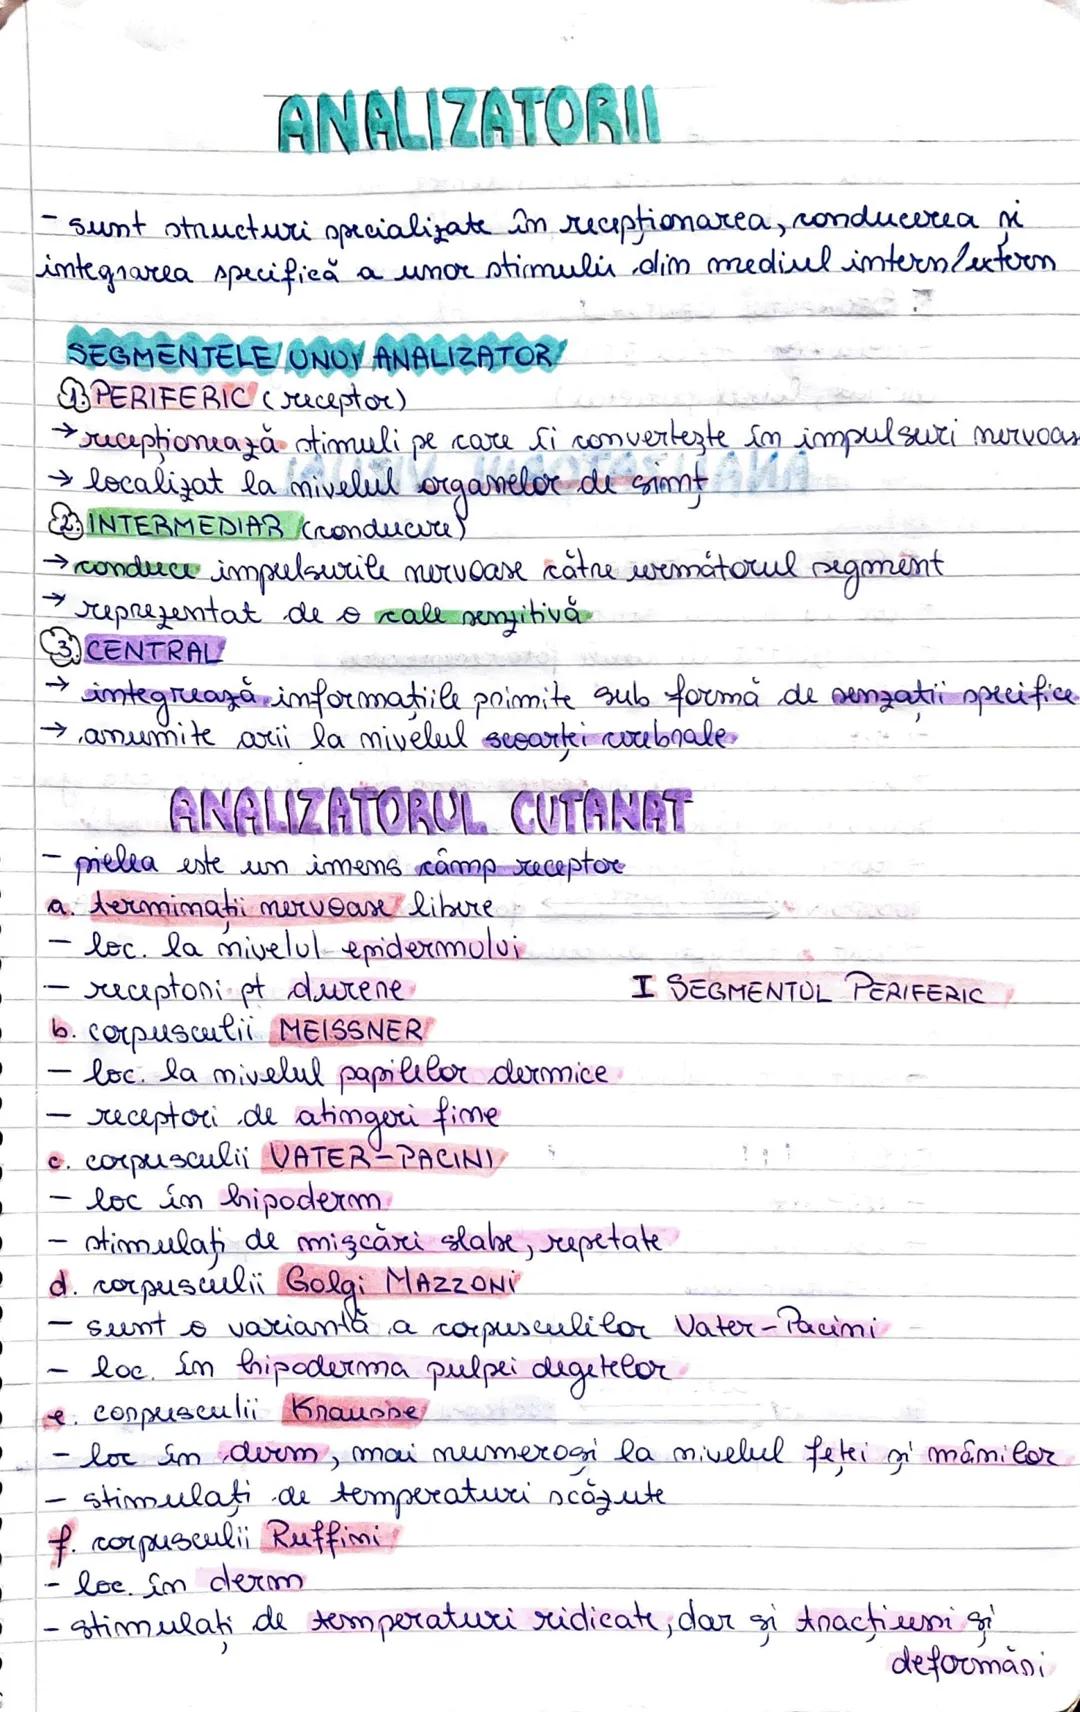 ANALIZATORII
- sunt structuri specializate în recepționarea, conducerea și
integrarea specifică a unor stimuli din mediul intern/extern
SEGMENTELE UNUI ANALIZATOR
1. PERIFERIC (receptor)
→ recepționează stimuli pe care îi convertește în impulsuri nervoas
→ localizat la nivelul organelor de simț
2. INTERMEDIAR (conducere)
→ conduce impulsurile nervoase către următorul segment
→ reprezentat de o cale senzitivă
3. CENTRAL
→ integrează informațiile primite sub formă de senzații specifice
→ anumite arii la nivelul scoarței cerebrale
ANALIZATORUL CUTANAT
- pielea este un imens câmp receptor
a. terminații nervoase libere
- loc. la nivelul epidermului
- receptori pt durere
I SEGMENTUL PERIFERIC
b. corpusculii MEISSNER
- loc. la nivelul papilelor dermice
- receptori de atingeri fine
c. corpusculii VATER-PACINI
- loc în hipoderm
- stimulați de mișcări slabe, repetate
d. corpusculii Golgi MAZZONI
- sunt o variantă a corpusculilor Vater-Pacini
- loc. în hipoderma pulpei degetelor
e. corpusculii Krausse
- loc în derm, mai numeroși la nivelul feței și mâinilor
- stimulați de temperaturi scăzute
f. corpusculii Ruffini
- loc. în derm
- stimulați de temperaturi ridicate, dar și tracțiuni și
deformări